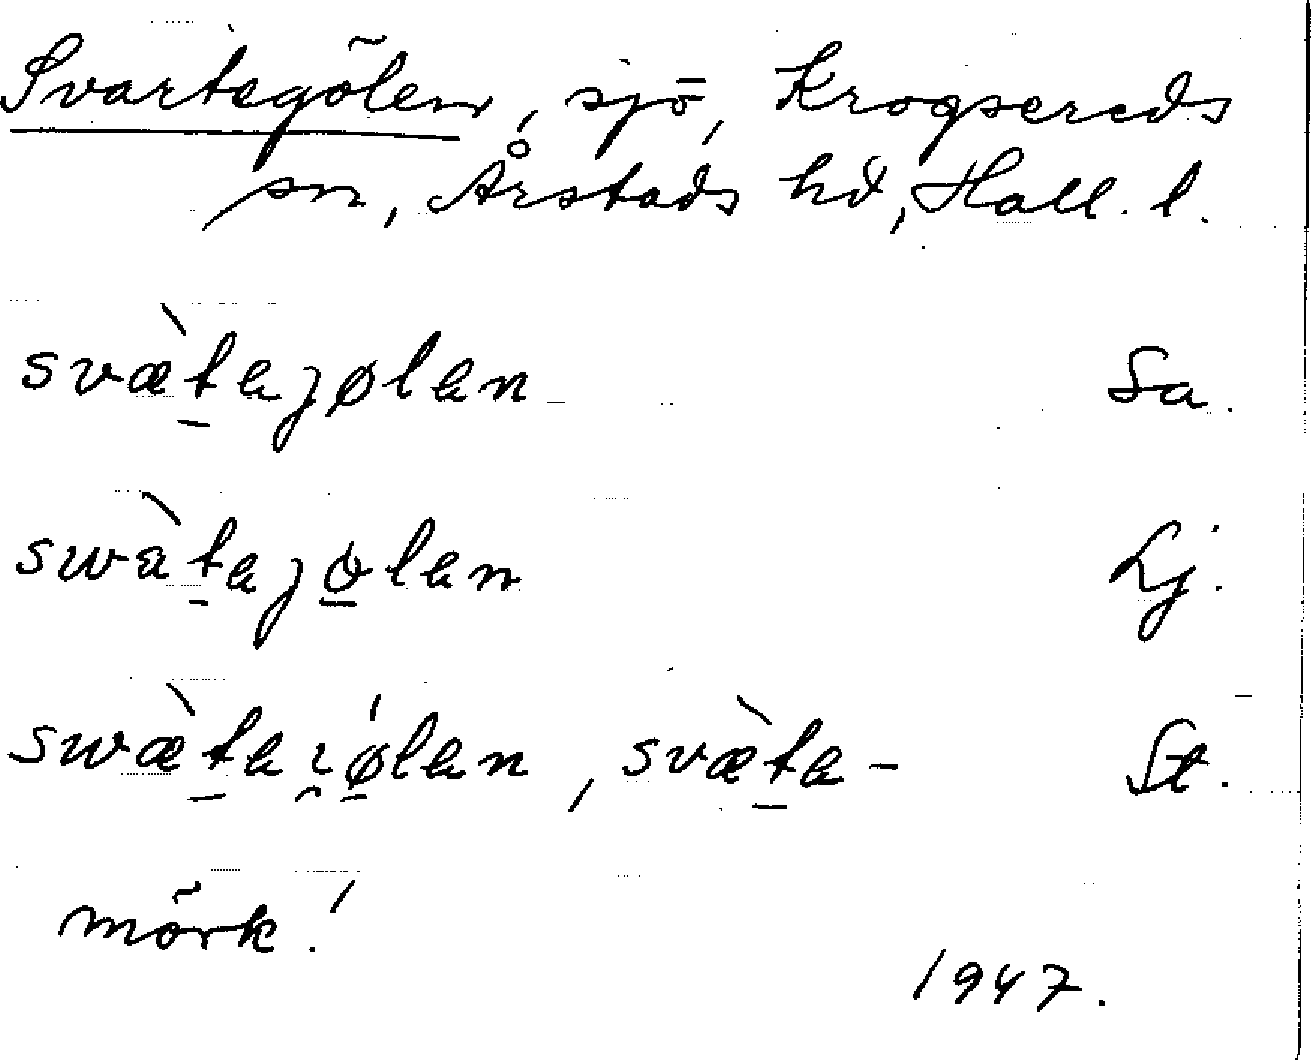 Svartegölen, sjö, Krogsereds
sn, Årstads hd, Hall. l.
svæ̀tajølan Sa.
swàtajølan Lj.
swæ̀taıǿlan, svæ̀ta- St.
mörk!
1947.